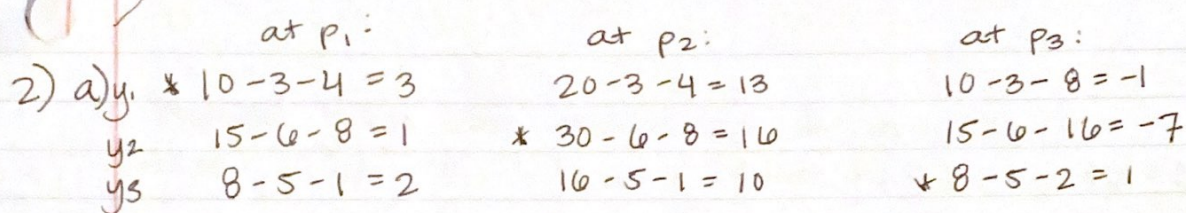 at p₁: at p₂: at p₃:
2) a) y₁ * 10-3-4 = 3 20-3-4 = 13 10-3-8 = -1
y₂ 15-6-8 = 1 * 30-6-8 = 16 15-6-16 = -7
y₃ 8-5-1 = 2 16-5-1 = 10 * 8-5-2 = 1